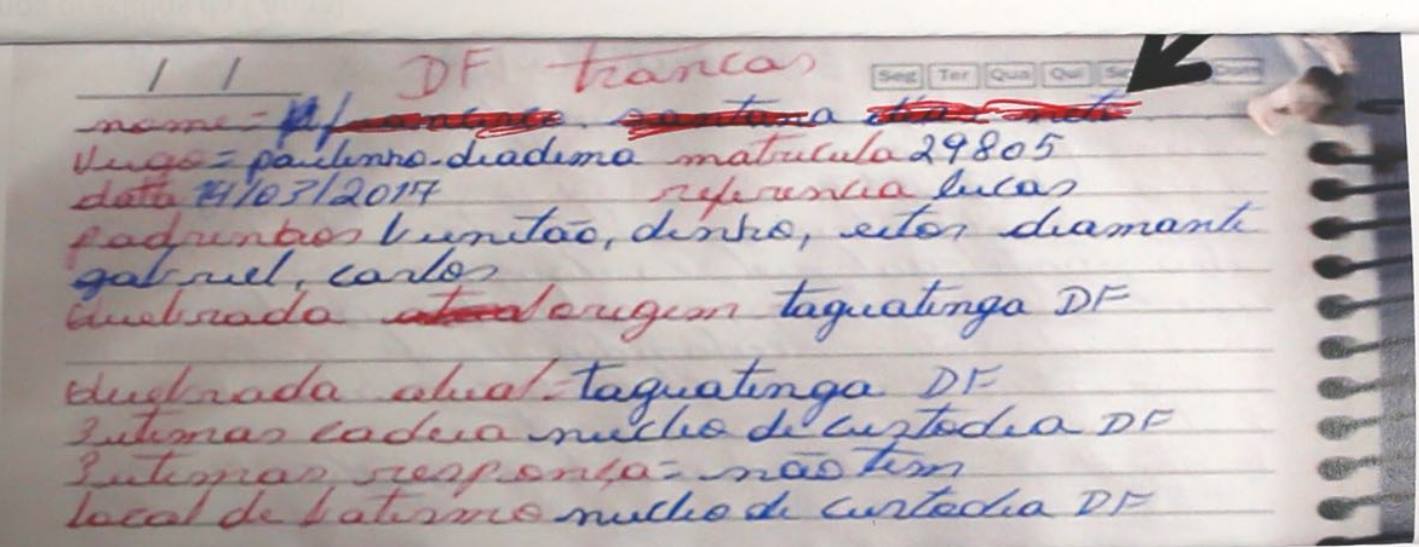 / / DF trancas Seg Ter Qua Qui Dom
nome=
Vugo = paulinho-diadema matricula 29805
data 14/03/2017 referencia lucas
padrinhos bunitão, dinho, eitor diamante
gabriel, carlos
Quebrada origem taguatinga DF
Quebrada atual = taguatinga DF
3 utimas cadeia nucleo de custodia DF
3 utimas responça = não tem
local de batismo nucleo de custodia DF